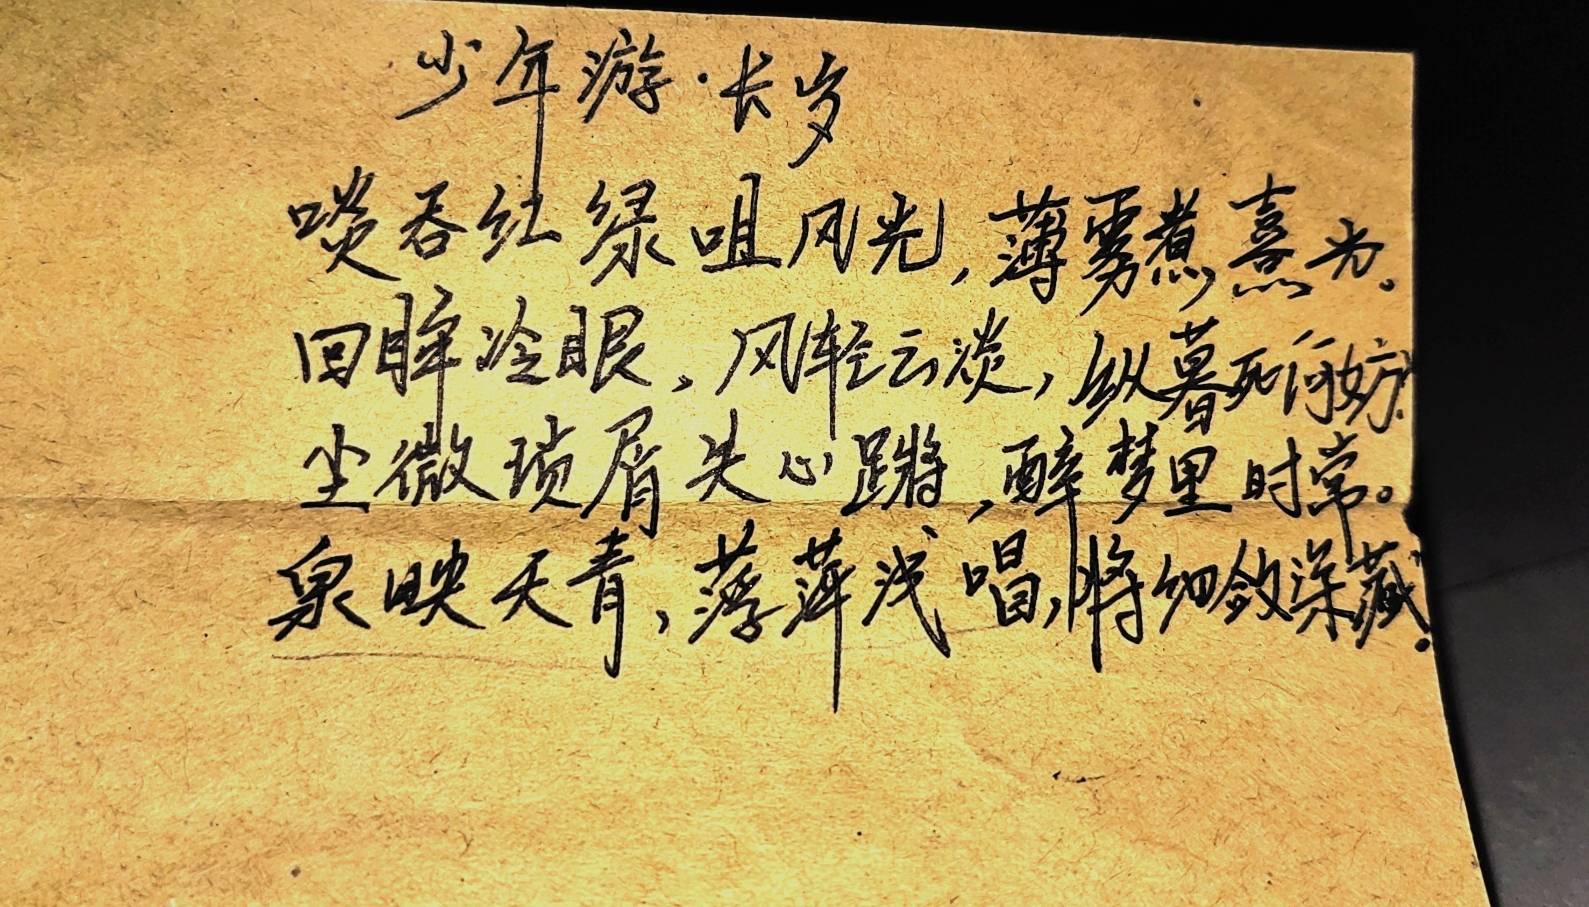 少年游·长岁
啖吞红绿咀风光，薄雾煮熹为。
回眸冷眼，风轻云淡，纵暮死何妨。
尘微琐屑失心蹡，醉梦里时常。
泉映天青，萍浅唱，将细敛深藏。